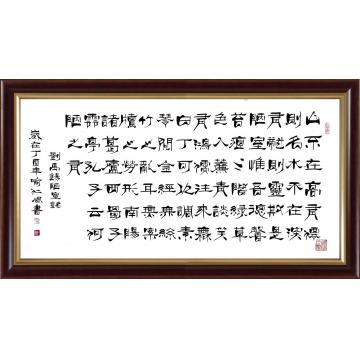 山不在高有僊
則名水不在深
有龍則靈斯是
陋室惟吾德馨
苔痕上階綠草
色入簾青談笑
有鴻儒往來無
白丁可以調素
琴閱金經無絲
竹之亂耳無案
牘之勞形南陽
諸葛廬西蜀子
雲亭孔子云何
陋之有
劉禹錫陋室銘
歲在丁酉年書